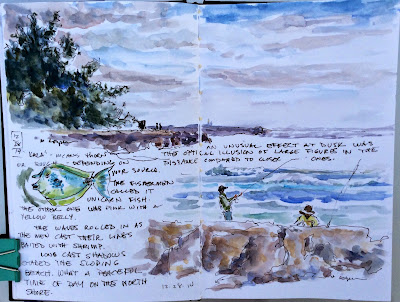 12
28
14
"LAEA" - MEANS "HORN"
OR DEPENDING ON
YOUR SOURCE.
THE FISHERMEN
CALLED IT
UNICORN FISH
THE OTHER ONE WAS PINK WITH A
YELLOW BELLY.
THE WAVES ROLLED IN AS
THE MEN CAST THEIR LINES
BAITED WITH SHRIMP.
LONG CAST SHADOWS
THE SLOPING
BEACH. WHAT A PEACEFUL
TIME OF DAY ON THE NORTH
SHORE.
AN UNUSUAL EFFECT AT DUSK WAS
THE OPTICAL ILLUSION OF LARGE FIGURES IN THE
DISTANCE COMPARED TO CLOSER ONES.
12-28-14